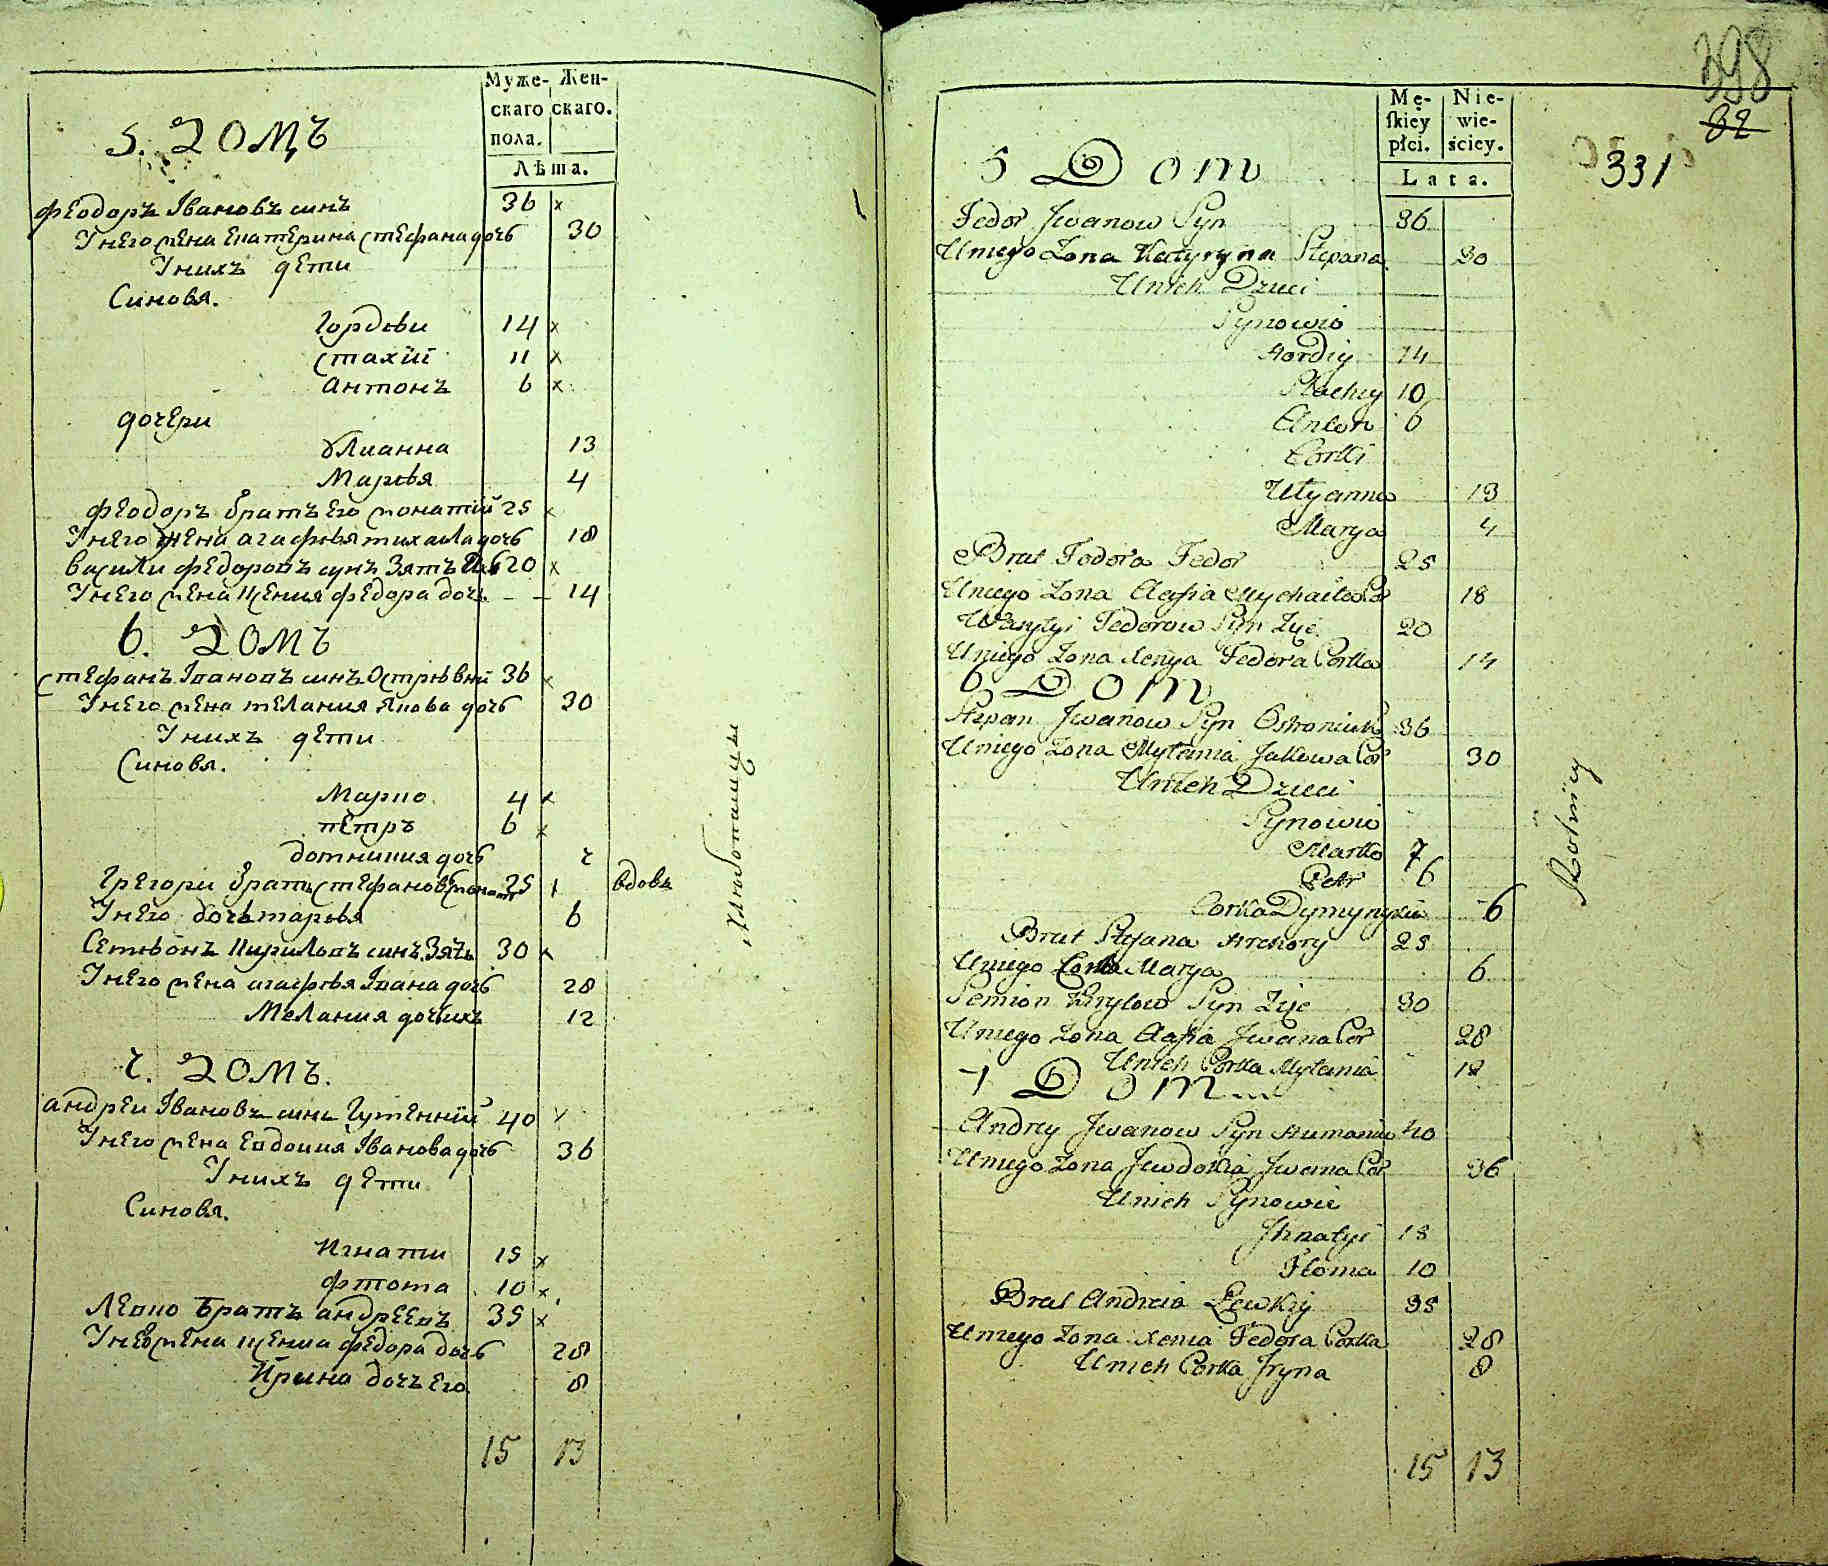 Муже- Жен-
скаго скаго.
пола.
Лѣта.
5. ДОМЪ
Феодоръ Івановъ синъ 36 x
У него жена Екатерина Стефана дочь 30
У нихъ дети
Синовя.
Гордеи 14 x
Стахїй 11 x
Антонъ 6 x
дочери
Улианна 13
Маръя 4
Феодоръ братъ Его жонатїй 25 x
У него жена агафъя михаила дочь 18
Васили Федоровъ синъ Зятъ 20 x
У него жена Ксения Федора дочь - - 14
6. ДОМЪ
Стефанъ Івановъ синъ 36 x
У него жена Мелания Якова дочь 30
У нихъ дети
Синовя.
Марко 4 x
Петръ 6 x
дочь
Грегори братъ Стефановъ 25 вдовъ
У него дочь маръя 6
Семѣонъ Кириловъ синъ Зять 30 x
У него жена агафъя Івана дочь 28
Мелания дочь ихъ 12
ДОМЪ.
андреи Івановъ синъ 40 x
У него жена Евдокия Іванова дочь 36
У нихъ дети
Синовя.
Игнати 15 x
10 x
Левко братъ андреевъ 35 x
У него жена Ксения Федора дочь 28
Ирина дочъ Его 8
15 13
Хлибопашцы
398
82
331
Mę- Nie-
skiey wie-
płci. ściey.
Lata.
5 Dom
Fedor Jwanow Syn 36
Uniego Zona Katyryna Stepana 30
Unich Dzieci
Synowie
Hordiy 14
Stachiy 10
Anton 6
Corki
Ulyanna 13
Marya 4
Brat Fedora Fedor 25
Uniego Zona Agafia Mychaiła Cor 18
Wasylyi Fedorow Syn Zięć 20
Uniego Zona Xenya Fedora Corka 14
6 Dom
Stepan Jwanow Syn 36
Uniego Zona Mylania Jakowa Cor 30
Unich Dzieci
Synowie
Marko 7
Petr 6
Corka 6
Brat Stefana Hrehory 25
Uniego Corka Marya 6
Semion Kirylow Syn Zięć 30
Uniego Zona Agafia Jwana Cor 28
Unich Corka Mylania 12
7 Dom
Andrey Jwanow Syn 40
Uniego Zona Jewdokia Jwana Cor 36
Unich Synowie
Jhnatyi 15
Floma 10
Brat Andreia Lewkiy 35
Uniego Zona Xenia Fedora Corka 28
Unich Corka Jryna 8
15 13
Rolnicy